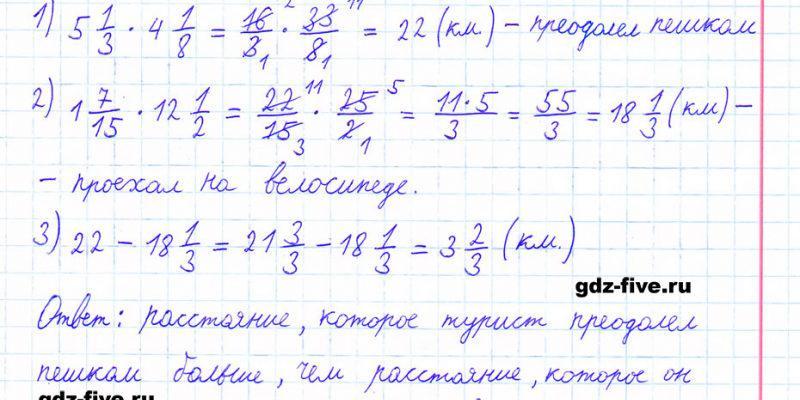 1) 5 1/3 · 4 1/8 = 16/3 · 33/8 = 22 (км.) – преодолел пешком
2) 1 7/15 · 12 1/2 = 22/15 · 25/2 = 11·5/3 = 55/3 = 18 1/3 (км) –
– проехал на велосипеде.
3) 22 – 18 1/3 = 21 3/3 – 18 1/3 = 3 2/3 (км.)
gdz-five.ru
Ответ: расстояние, которое турист преодолел
пешком больше, чем расстояние, которое он
gdz-five.ru